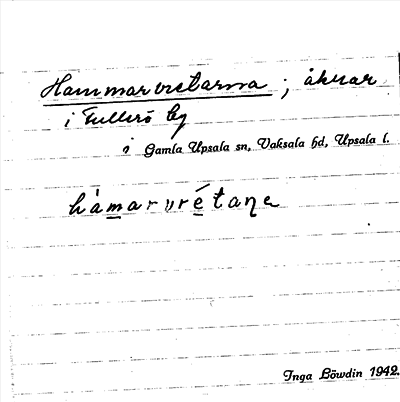 Hammarvretarna ; åkrar
i Fullerö by
i Gamla Upsala sn, Vaksala hd, Upsala l.
hàmarvrétaŋe
Inga Löwdin 1942.